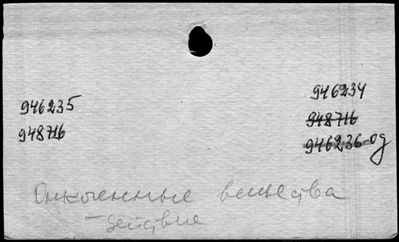 946235
948716
946234
948716
946236-од
Онкогенные вещества
- действие